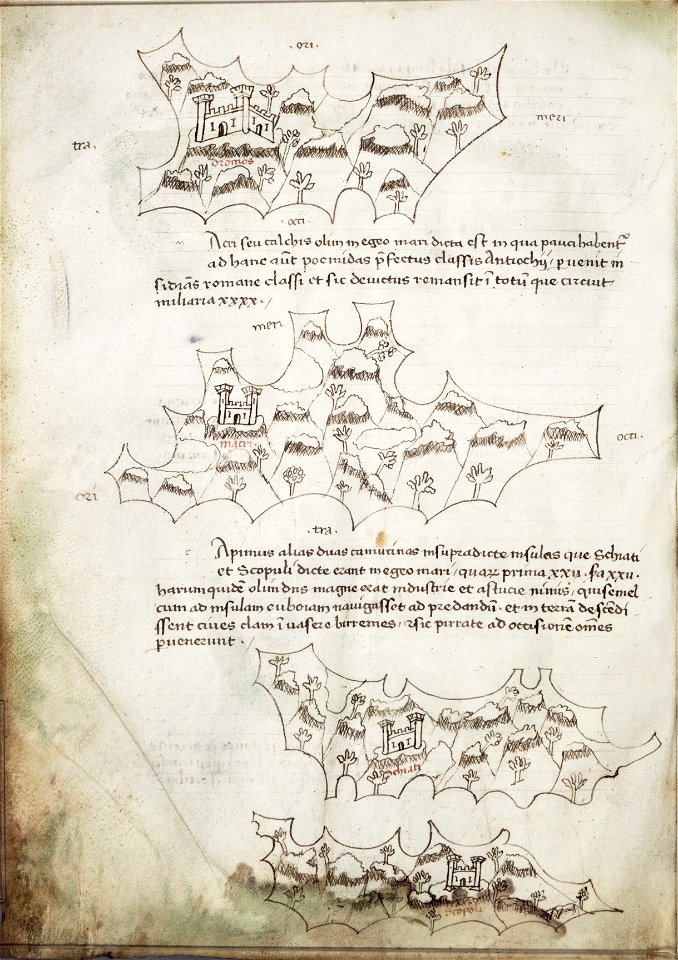 ori
meri
tra
dromos
occi
Acri seu calchis olim in egeo mari dicta est in qua pauci habent
ad hanc aut̄ poemidas p̄fectus classis Antiochij / p̱uenit in
sidias romane classi et sic devictus remansit ī totū que circuit
miliaria xxxx.
meri
macri
occi
ori
tra
Apimus alias duas camutinas insupradicte insulas que Schiati
et Scopuli dicte erant in egeo mari / quaꝝ prima xxii. sa xxii.
harum quidē olim dn̄s magne erat industrie et astucie nimis, qui semel
cum ad insulam euboiam nauigasset ad predandū. et in terrā descēdi
ssent ciues clam ī uasere birremes / et sic pirrate ad occisionē om̄es
p̱uenerunt.
Schiati
Scopoli